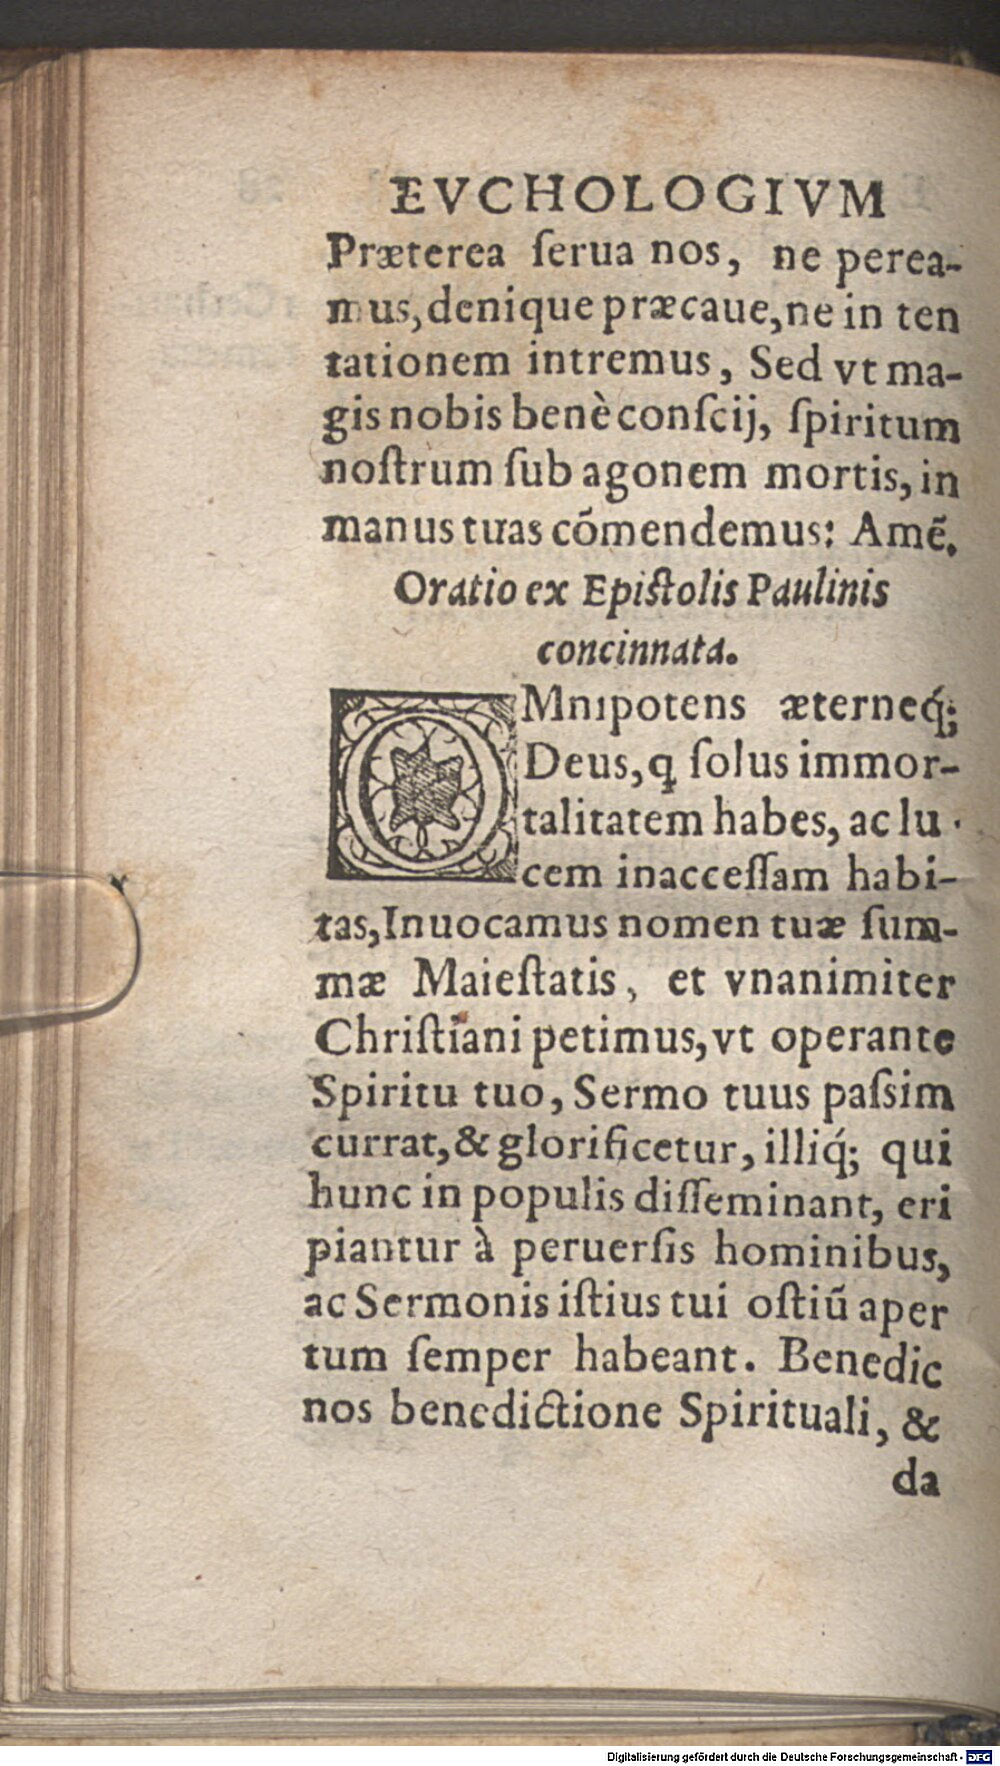 EVCHOLOGIVM
Præterea ſerua nos, ne perea-
mus, denique præcaue, ne in ten
tationem intremus, Sed vt ma-
gis nobis benè conſcij, ſpiritum
noſtrum ſub agonem mortis, in
manus tuas cõmendemus: Amẽ.
Oratio ex Epiſtolis Paulinis
concinnata.
OMnipotens æterneq́;
Deus, ꝗ ſolus immor-
talitatem habes, ac lu-
cem inacceſſam habi-
tas, Inuocamus nomen tuæ ſum-
mæ Maieſtatis, et vnanimiter
Chriſtiani petimus, vt operante
Spiritu tuo, Sermo tuus paſsim
currat, & glorificetur, illiq́; qui
hunc in populis diſſeminant, eri
piantur à peruerſis hominibus,
ac Sermonis iſtius tui oſtiũ aper
tum ſemper habeant. Benedic
nos benedictione Spirituali, &
da
Digitalisierung gefördert durch die Deutsche Forschungsgemeinschaft - DFG